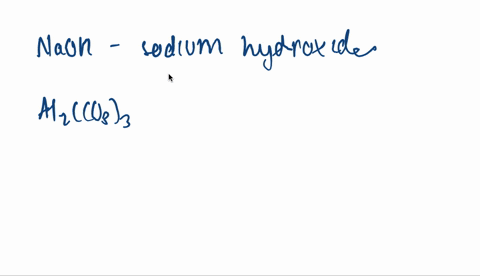 NaOH - sodium hydroxide
Al2(CO3)3